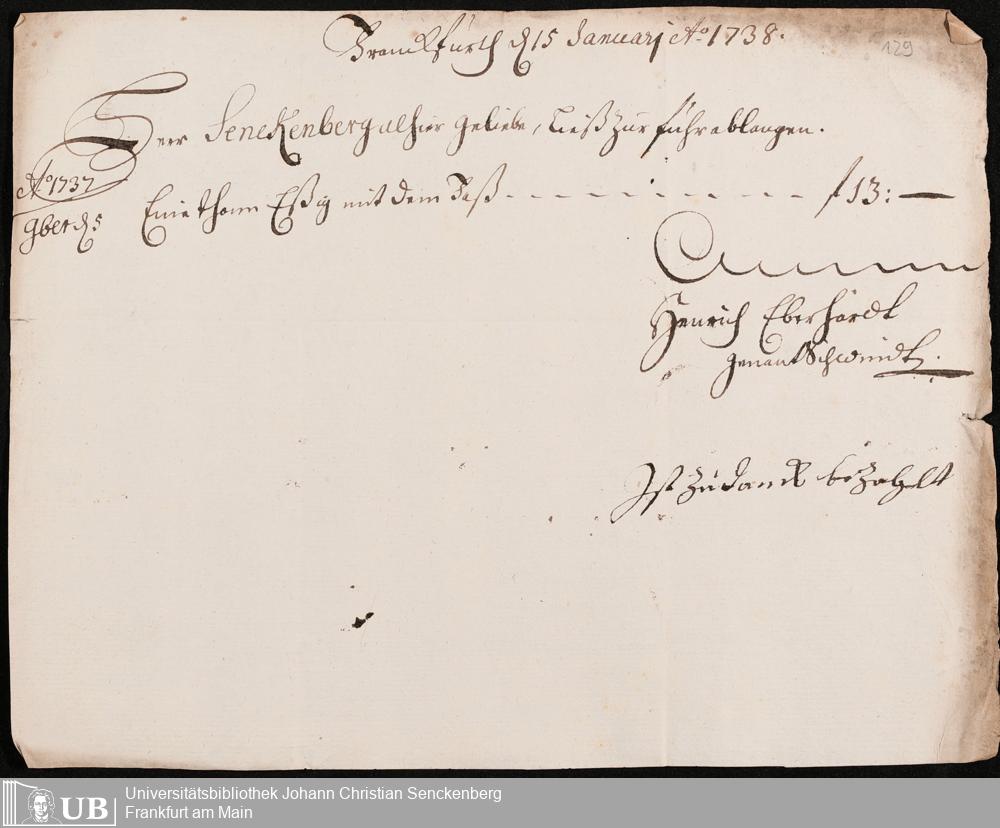 Franckfurth d 15 Januarj Ao 1738.
129
Herr Senckenberg alhier geliebe, ließ zur fuhr ablangen.
Ao 1737
9ber d 5 Eine thonn Eßig mit dem Faß - - - - - - - - - - f 13: —
Henrich Eberhardt
genant Schwindt.
Ist zu danck bezahlt
UB
Universitätsbibliothek Johann Christian Senckenberg
Frankfurt am Main